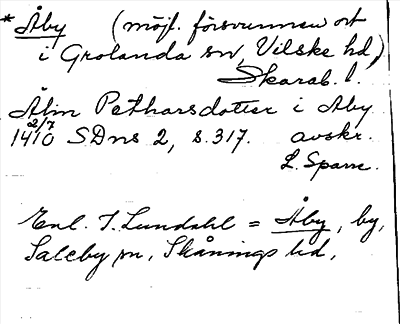 * Åby (möjl. försvunnen ort
i Grolanda sn, Vilske hd)
Skarab. l.
Älin Petharsdotter i Aby
2/7
1410 SDns 2, s. 317. avskr.
L. Sparre.
Enl. I. Lundahl = Åby, by,
Saleby sn, Skånings hd,